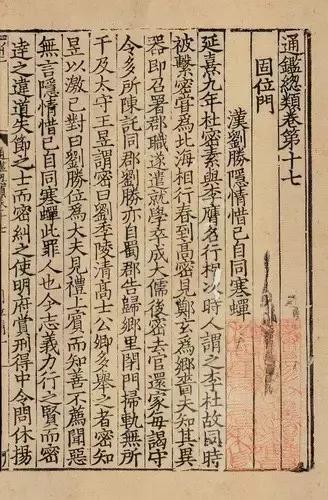 通鑑總類卷第十七
固位門
漢劉勝隱情惜已自同寒蟬
延熹九年杜密素與李膺名行相次時人謂之李杜故同時
被繫密嘗爲北海相行春到高密見鄭玄爲鄉嗇夫知其異
器即召署郡職遂遣就學卒成大儒後密去官還家每謁守
令多所陳託同郡劉勝亦自蜀郡告歸鄉里閉門掃軌無所
干及太守王昱謂密曰劉季陵清高士公卿多舉之者密知
昱以激已對曰劉勝位爲大夫見禮上賓而知善不薦聞惡
無言隱情惜已自同寒蟬此罪人也今志義力行之賢而密
逹之違道失節之士而密糾之使明府賞刑得中令問休揚